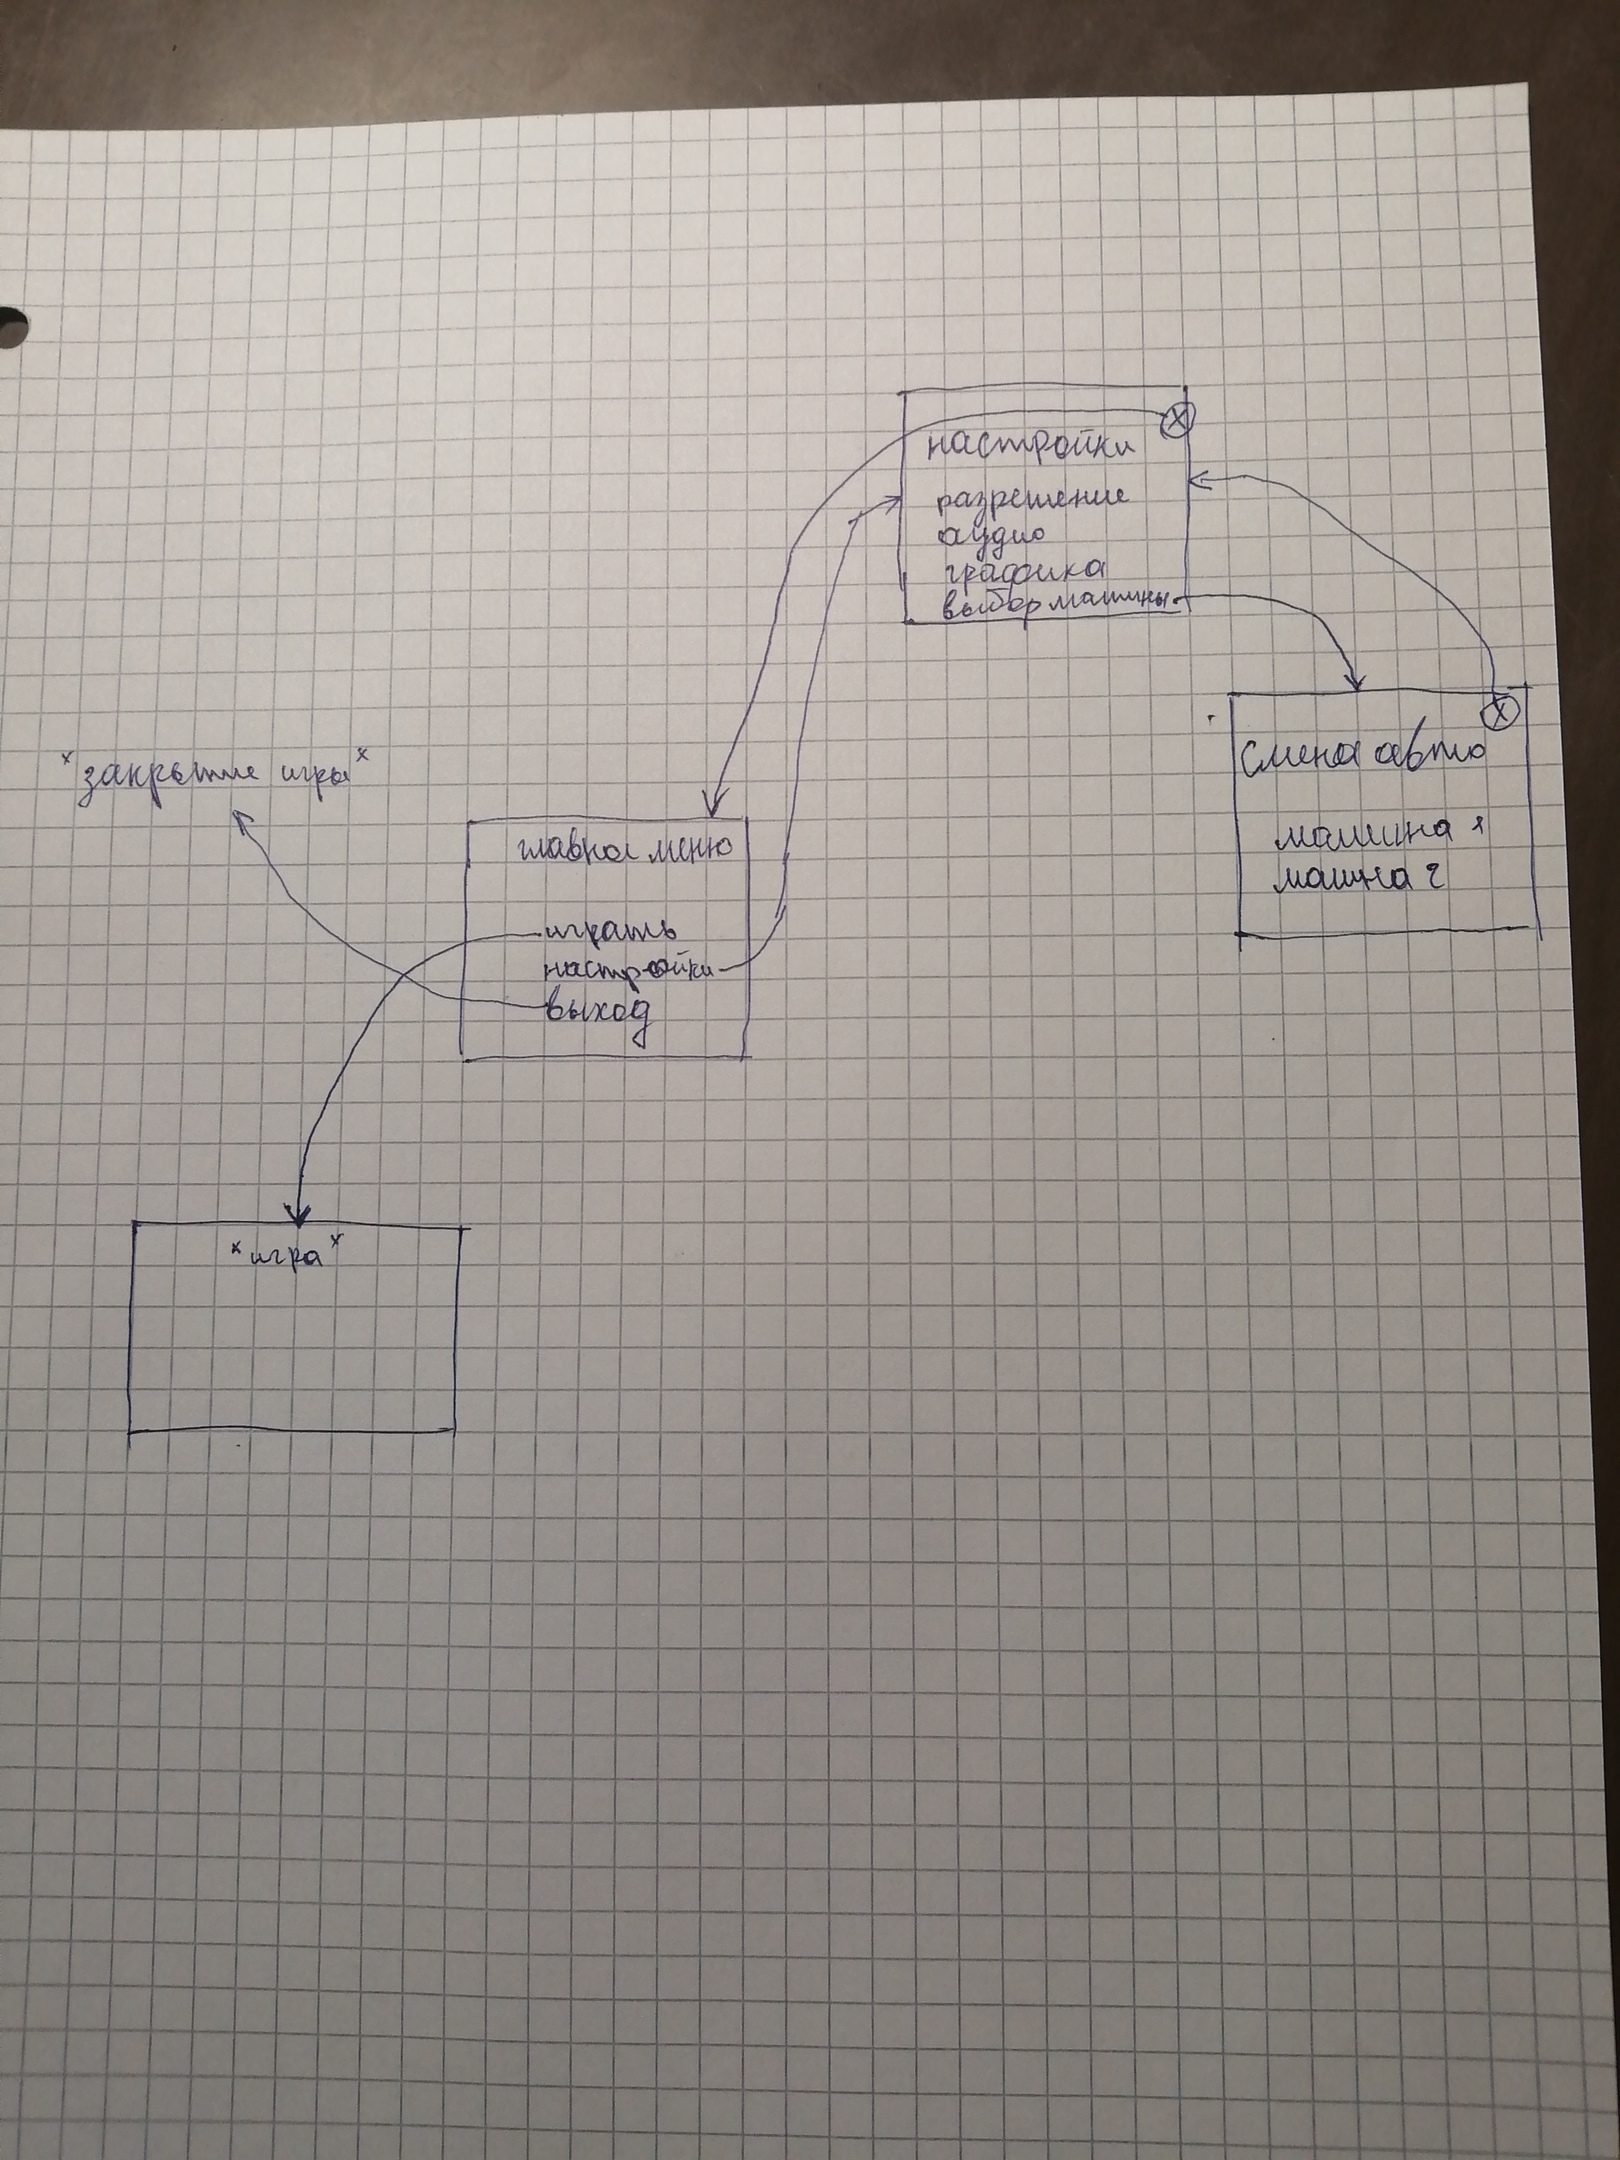 настройки
разрешение
аудио
графика
выбор машины
смена авто
машина 1
машна 2
*закрытие игры*
главное меню
играть
настройки
выход
*игра*